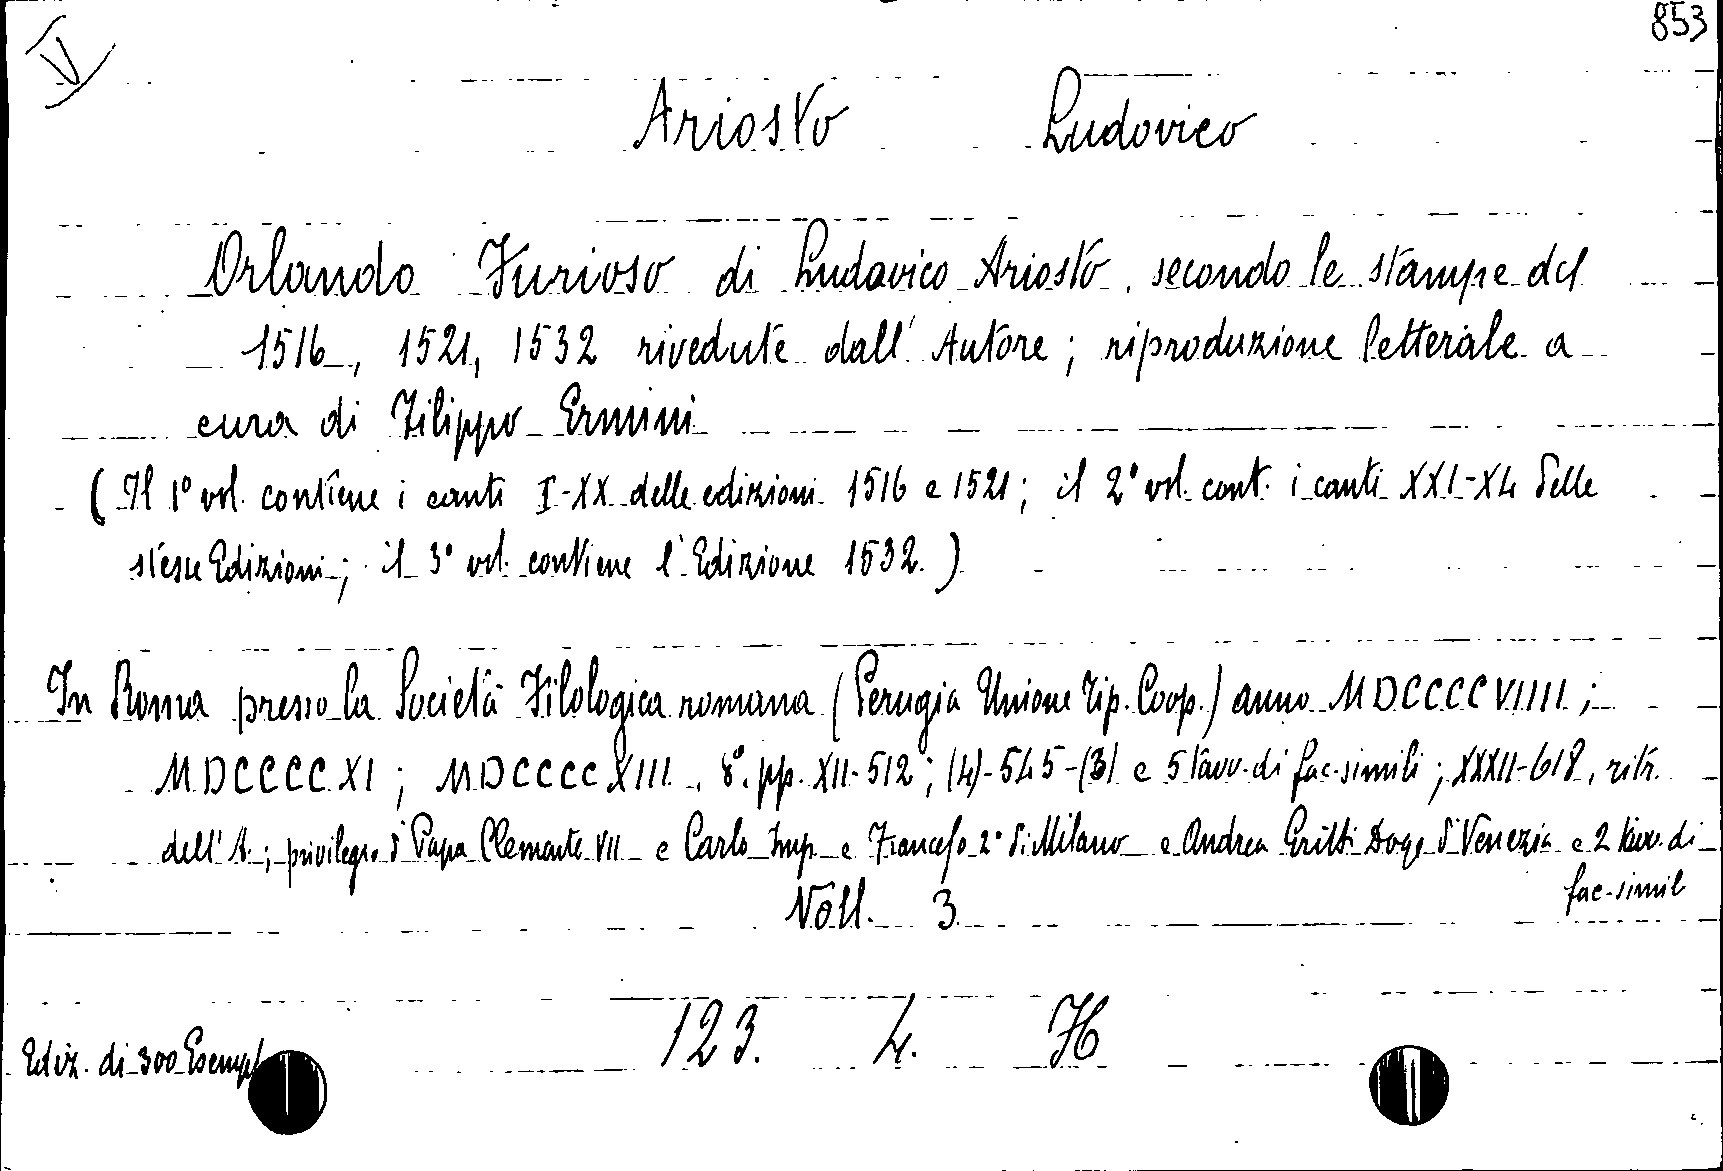 V
853
Ariosto Ludovico
Orlando Furioso di Ludovico Ariosto, secondo le stampe del
1516, 1521, 1532 rivedute dall'Autore; riproduzione letterale a
cura di Filippo Ermini
(Il 1° vol. contiene i canti I-XX delle edizioni 1516 e 1521; il 2° vol. cont. i canti XXI-XL delle
stesse Edizioni; il 3° vol. contiene l'Edizione 1532.)
In Roma presso la Società Filologica romana (Perugia Unione Tip. Coop.) anno MDCCCCVIIII;
MDCCCCXI; MDCCCCXIII. 8°. pp. XII-512; (4)-545-(3) e 5 tavv. di fac-simili; XXXII-618, ritr.
dell'A.; privilegio d Papa Clemente VII e Carlo Imp e Francesco 2° di Milano e Andrea Gritti Doge d Venezia e 2 tavv. di
fac-simil
Voll. 3
123. 4. H
Ediz. di 300 Esempl